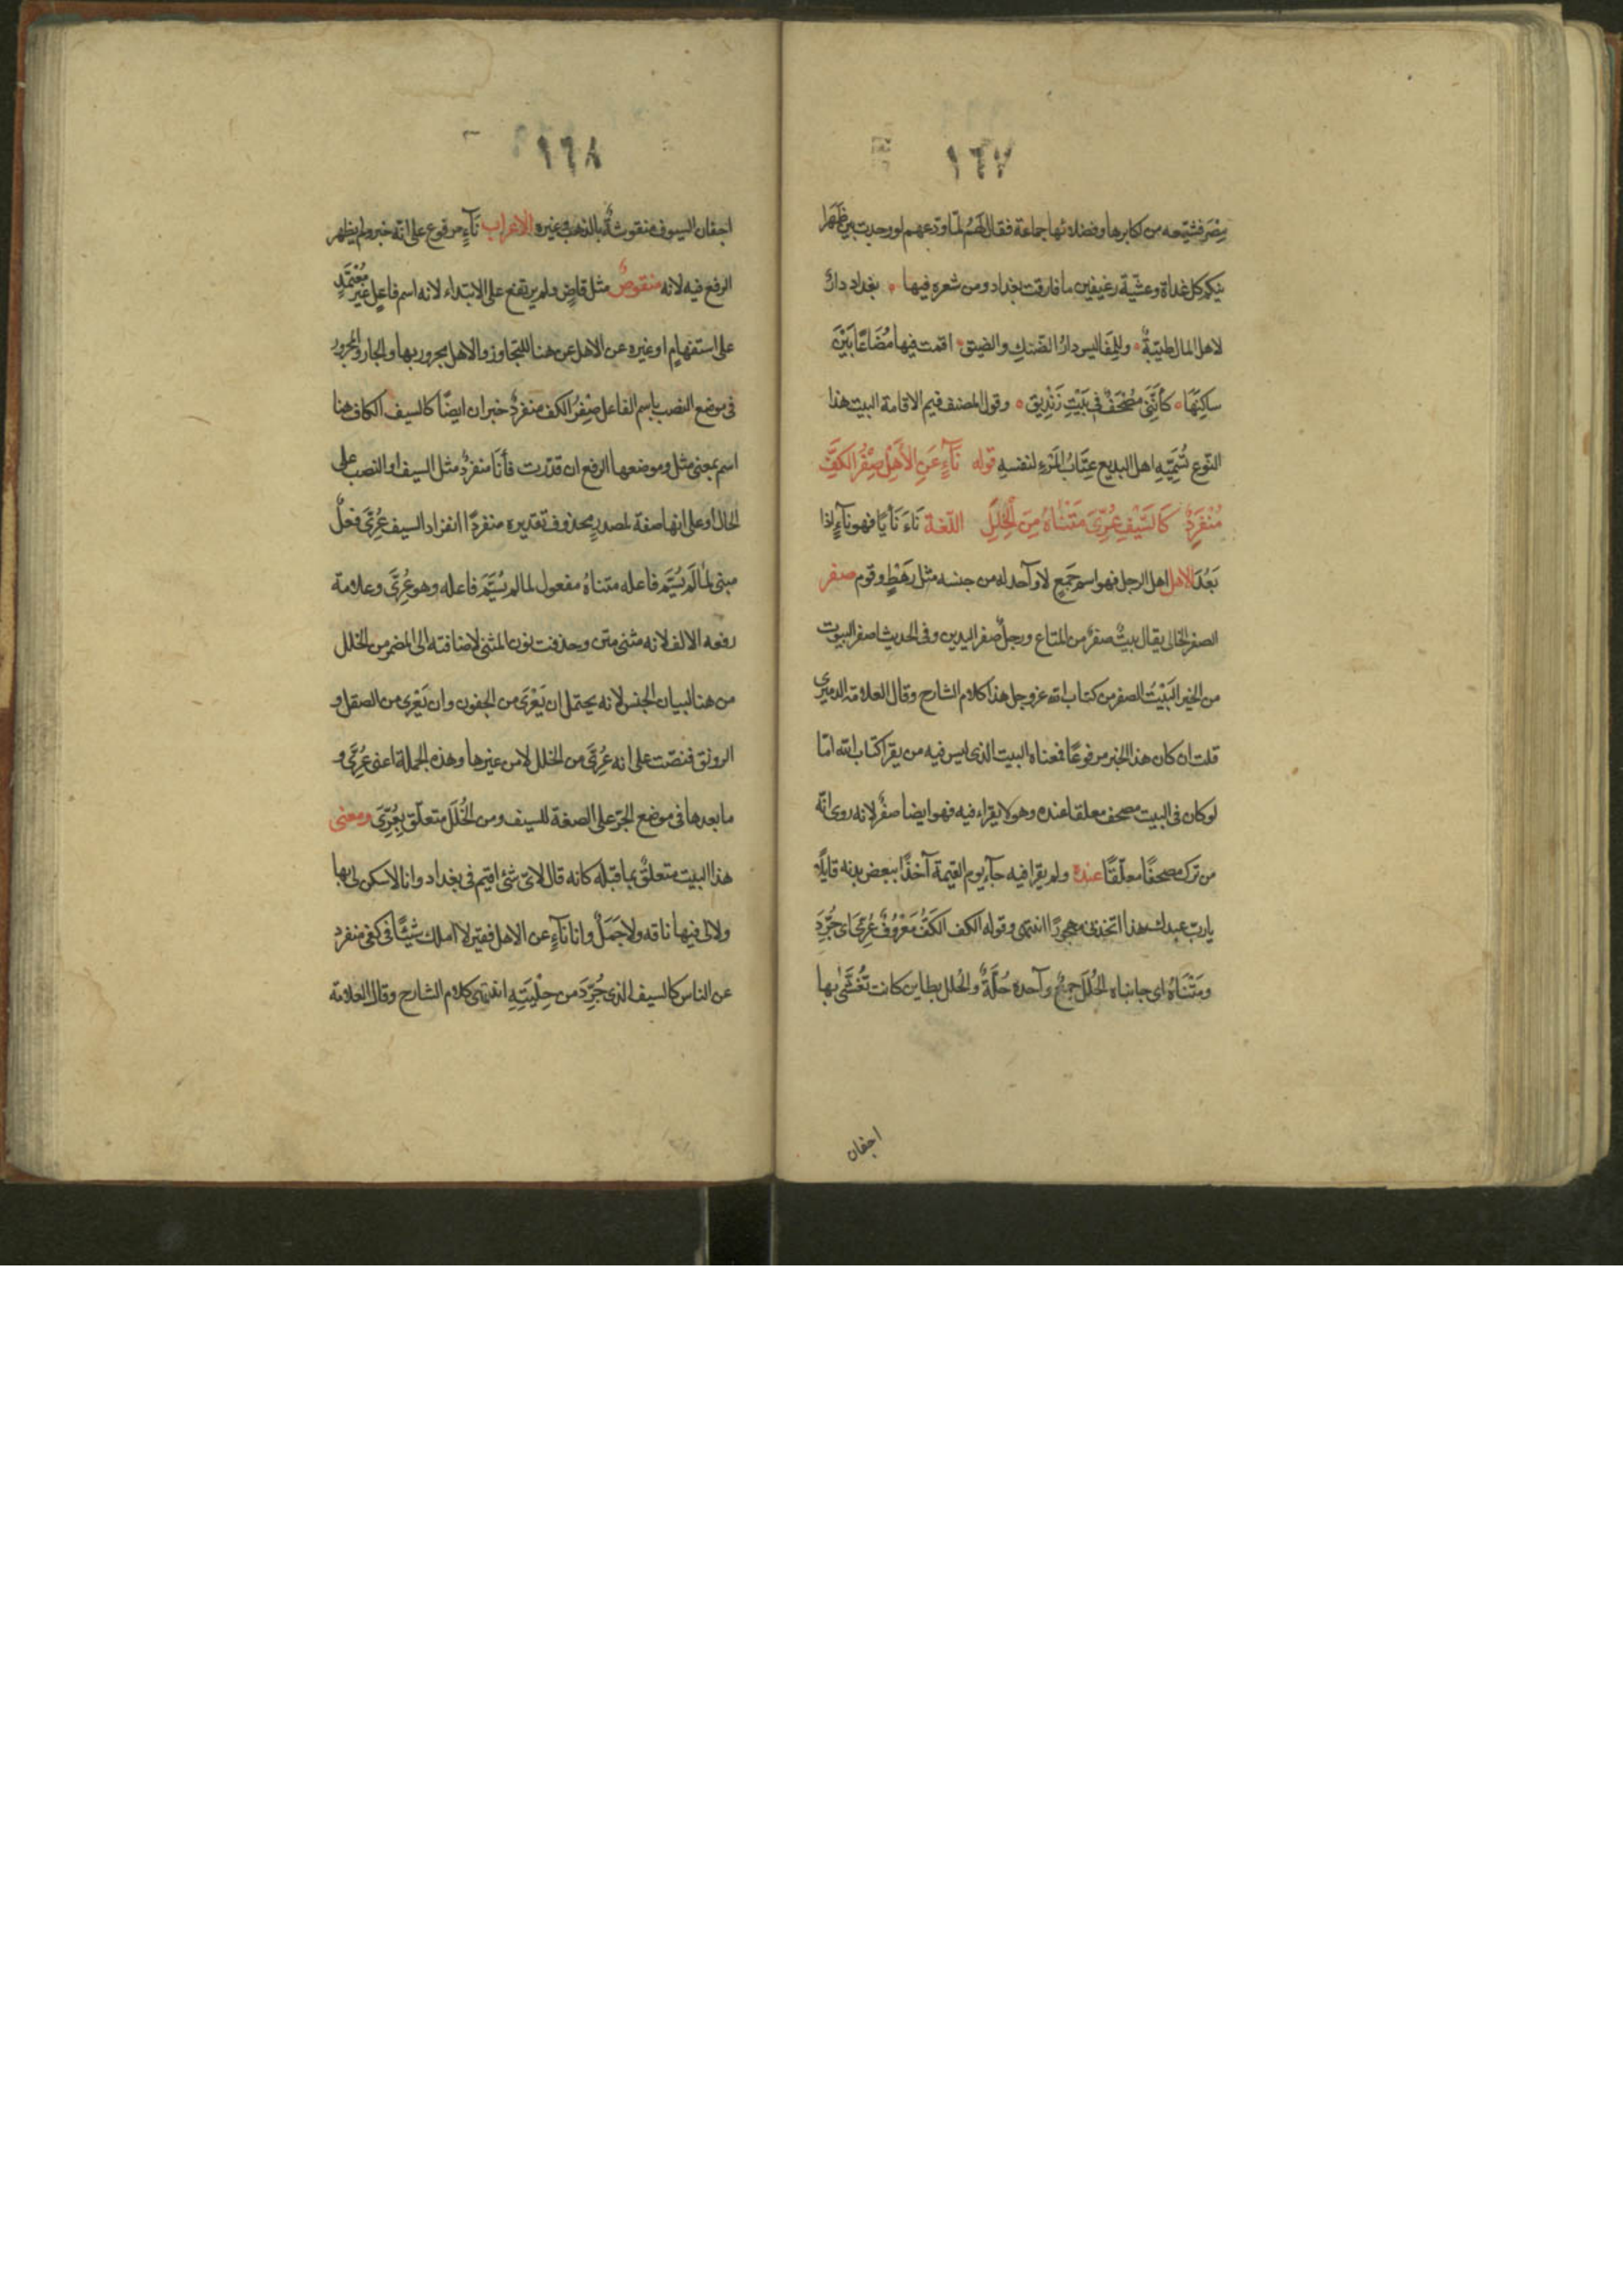 ١٦٧
مِصْرَ فشيّعه من اكابرها وفضلائها جماعة فقال لَهُمْ لمّا ودعهم لو وجدت بين ظَهَرا
نيكم كل غداة وعشيّة رغيفين ما فارقت بغداد ومن شعره فيها ٥ بغداد دارٌ
لاهل المال طيّبةٌ ٥ وللِمَفَاليس دارُ الضّنكِ والضيق ٥ اقمت فيها مُضَاعًا بَيْنَ
ساكِنَها ٥ كأنَّنى مُصْحَفٌ فى بَيْتِ زَنْدِيق ٥ وقول المصنف فيم الاقامة البيت هذا
النّوع تُسَمِّيَهِ اهل البديع عِتَابُ المَرْءِ لنفسهِ قوله نَآءٍ عَنِ الأَهْلِ صِفْرُ الكَفِّ
مُنْفَرِدٌ كَالسَّيْفِ عُرِّىَ مَتْنَاهُ مِنَ الْخِلَلِ اللّغة نَاءَ نَأيًا فهو نآءٍ اذا
بَعُدَ الاهل اهل الرجل فهو اسم جَمِيع لا وآحد له من جنسه مثل رَهَطٍ وقوم صفر
الصفر الخالى يقال بيتٌ صفرٌ من المتاع ورجلٌ صفر اليدين وفى الحديث اصفر البيوت
من الخير البَيْتُ الصفر من كتاب الله عز وجل هذا كلام الشارح وقال العلامة الدميرى
قلت ان كان هذا الخبر مرفوعًا فمعناه البيت الذى ليس فيه من يقرا كتاب الله امّا
لو كان فى البيت مصحف معلقا عنده وهو لا يقراء فيه فهو ايضا صفرٌ لانه روى انّه
من ترك مصحفًا معلّقًا عنده ولم يقرا فيه جآء يوم القيمة آخذًا ببعض بدنه قايلًا
يارب عبدك هذا اتخذنى مهجورًا انتهى وقوله الكف الكَفُّ مَعْرُوفٌ عُرِّىَ اى جُرِّدَ
ومَتْنَاهُ اى جانباه الخُلَل جمعٌ وآحده خُلَّةٌ والخلل بطاين كانت تُغَشَّىٰ بها
اجفان
١٦٨
اجفان السيوف منقوشةٌ بالذهب وغيره الاعراب نَآءٍ مرفوع على انّه خبر ولم يظهر
الرفع فيه لانه منقوصٌ مثل قاضٍ ولم يرتفع على الابتداء لانه اسم فاعلٍ غير مُعْتَمَدٍ
على استفهامٍ او غيره عن الاهل عن هنا للتجاوز والاهل مجرور بها والجار والمجرور
فى موضع النصب باسم الفاعل صِفْرُ الكف منفردٌ خبران ايضًا كالسيف الكاف هنا
اسم بمعنى مثل وموضعها الرفع ان قدّرت فأَنَا منفردٌ مثل السيف او النصب على
الحال او على انها صفة لمصدرٍ محذوف تقديره منفردًا انفراد السيف عُرِّىَ فعلٌ
مبنى لما لَم يُسَمَّ فاعله متناهُ مفعول لما لم يُسَمَّ فاعله وهو عُرِّىَ وعلامة
رفعه الالف لانه مثنى متن وحذفت نون المثنى لاضافته الى المضمر من الخلل
من هنا لبيان الجنس لانه يحتمل ان يَعْرَى من الجفون وان يَعْرى من الصقل و
الرونق فنصّت على انه عُرِّىَ من الخلل لا من غيرها وهذه الجملة اعنى عُرِّىَ و
ما بعدها فى موضع الجرّ على الصفة للسيف ومن الخُلَل متعلّق بِعُرِّىَ ومعنى
هذا البيت متعلقٌ بما قبله كانه قال لاىّ شئ اقيم فى بغداد وانا لا سكن لى بها
ولا لى فيها ناقه ولا جَمَلٌ وانا نآءٍ عن الاهل فقير لا املك شيئًا فى كفى منفرد
عن الناس كالسيف الذى جُرِّدَ من حِلْيَتِهِ انتهى كلام الشارح وقال العلامة